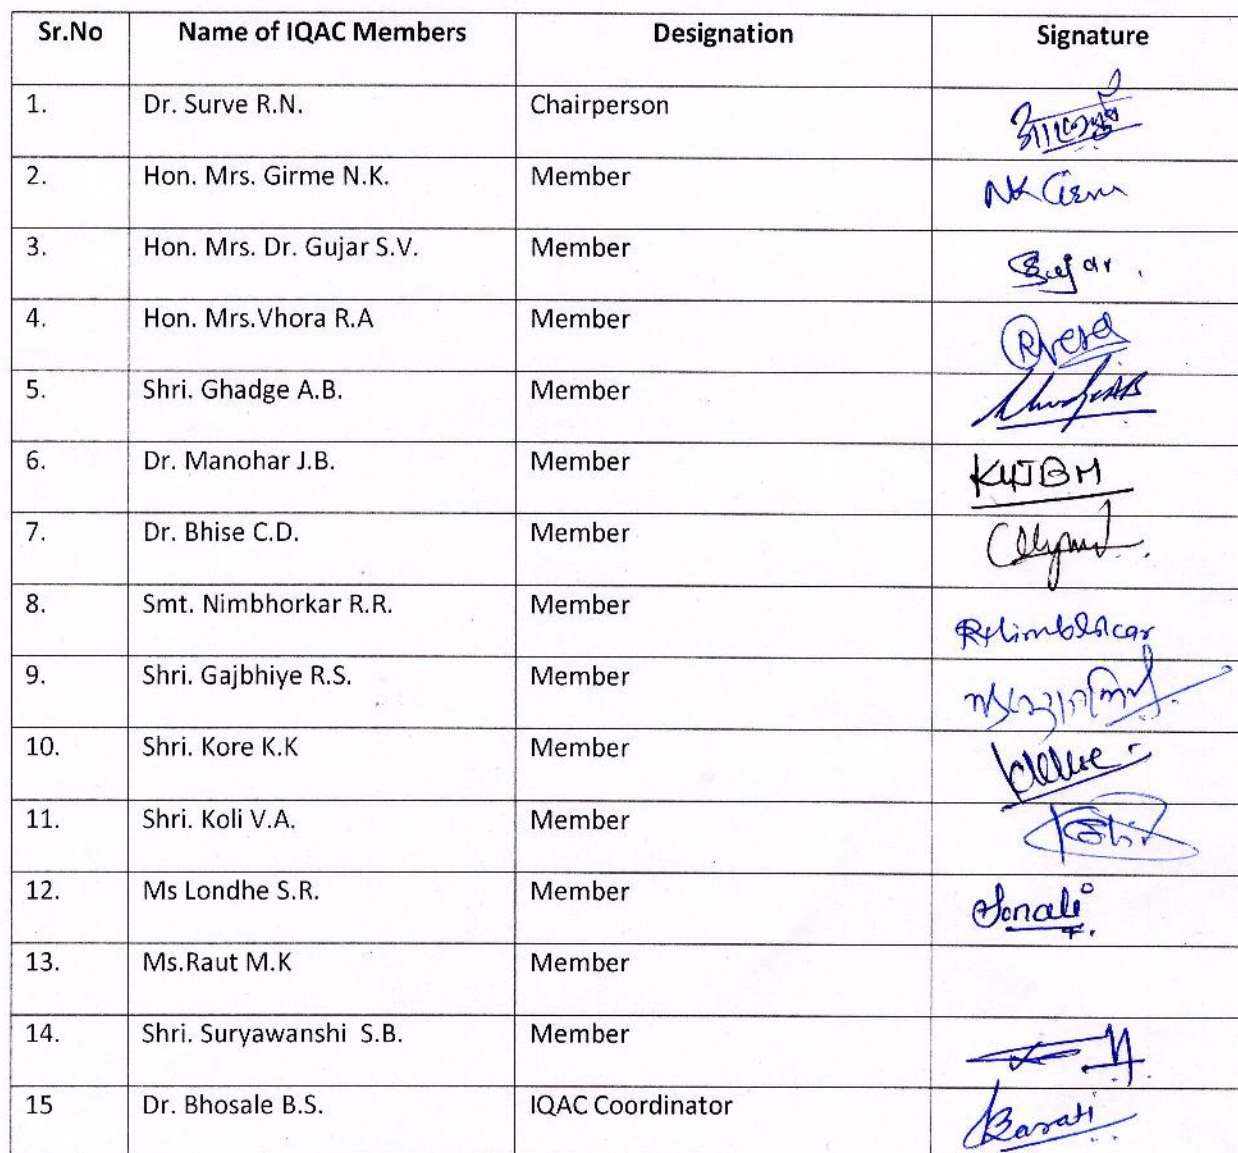 Sr.No Name of IQAC Members Designation Signature
1. Dr. Surve R.N. Chairperson
2. Hon. Mrs. Girme N.K. Member
3. Hon. Mrs. Dr. Gujar S.V. Member
4. Hon. Mrs.Vhora R.A Member
5. Shri. Ghadge A.B. Member
6. Dr. Manohar J.B. Member
7. Dr. Bhise C.D. Member
8. Smt. Nimbhorkar R.R. Member
9. Shri. Gajbhiye R.S. Member
10. Shri. Kore K.K Member
11. Shri. Koli V.A. Member
12. Ms Londhe S.R. Member Sonali
13. Ms.Raut M.K Member
14. Shri. Suryawanshi S.B. Member
15 Dr. Bhosale B.S. IQAC Coordinator